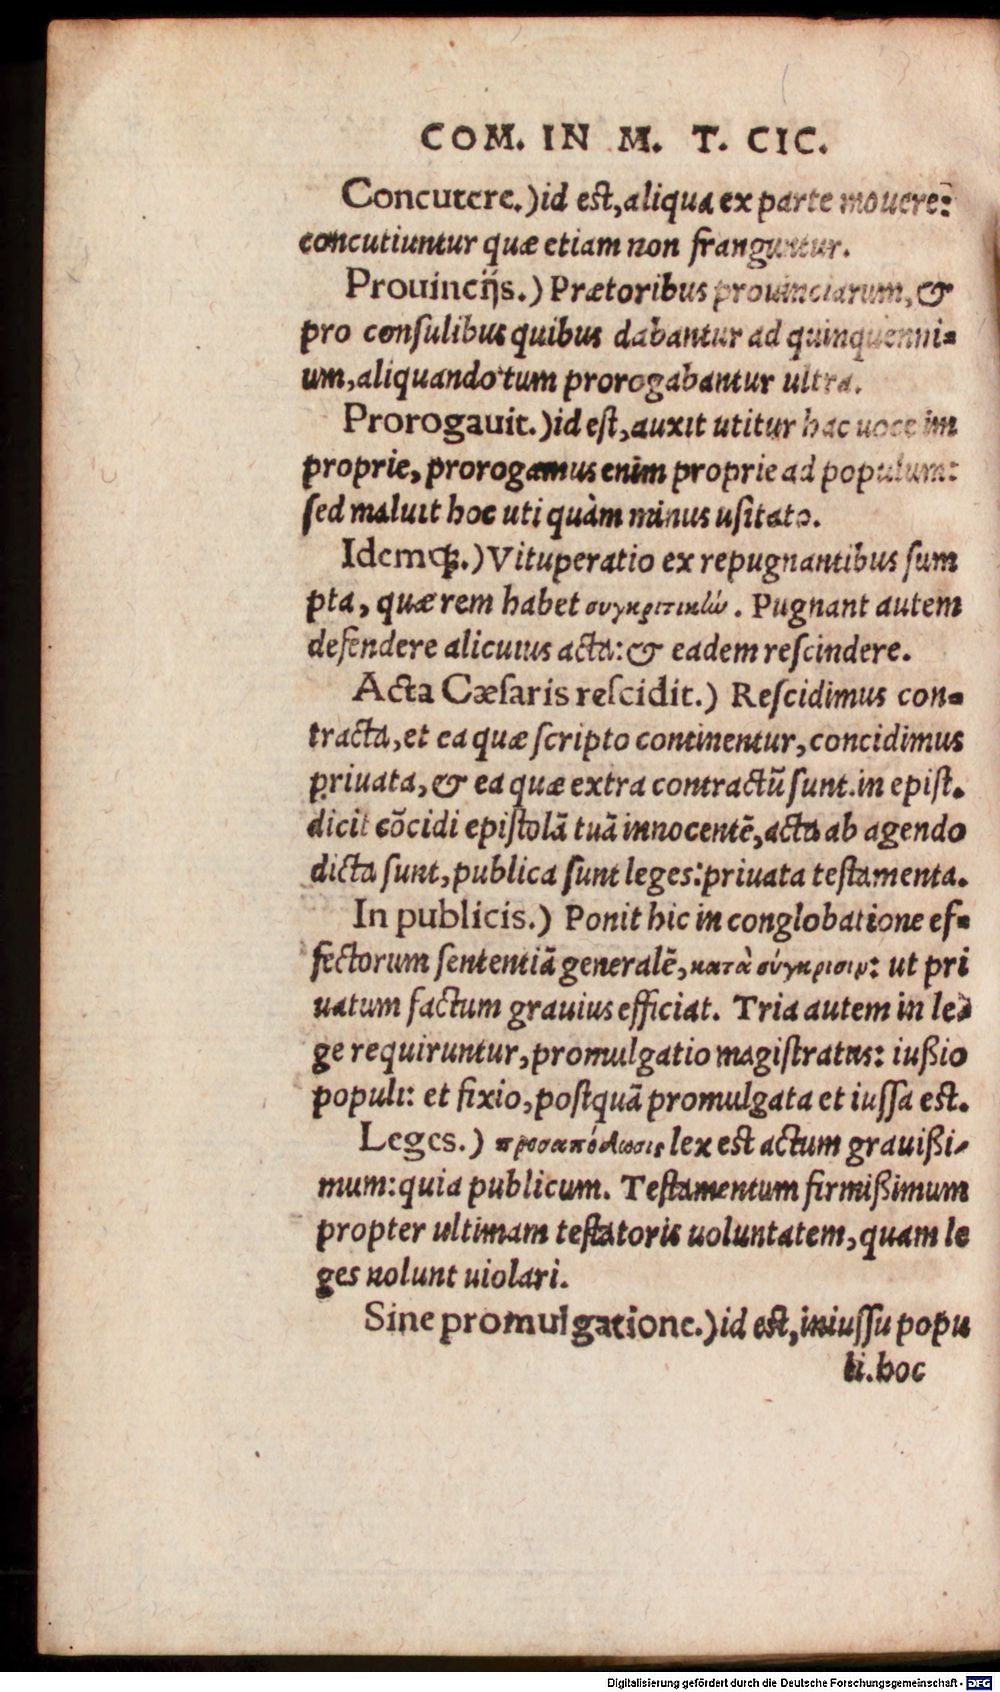 COM. IN M. T. CIC.
Concutere.) id est, aliqua ex parte mouere:
concutiuntur quæ etiam non franguntur.
Prouincijs.) Prætoribus prouinciarum, &
pro consulibus quibus dabantur ad quinquenni-
um, aliquando tum prorogabantur ultra.
Prorogauit.) id eſt, auxit utitur hac uoce im
proprie, prorogamus enim proprie ad populum:
ſed maluit hoc uti quàm minus uſitato.
Idemqꝫ.) Vituperatio ex repugnantibus ſum
pta, quæ rem habet συγκριτικὼ. Pugnant autem
defendere alicuius acta: & eadem reſcindere.
Acta Cæſaris reſcidit.) Reſcidimus con-
tracta, et ea quæ ſcripto continentur, concidimus
priuata, & ea quæ extra contractũ ſunt. in epiſt.
dicit cōcidi epiſtolā tuā innocentē, acta ab agendo
dicta ſunt, publica ſunt leges: priuata teſtamenta.
In publicis.) Ponit hic in conglobatione ef-
fectorum ſententiā generalē, κατὰ σύγκρισιν: ut pri
uatum factum grauius efficiat. Tria autem in le-
ge requiruntur, promulgatio magiſtratus: iußio
populi: et fixio, poſtquā promulgata et iuſſa est.
Leges.) προσαπόδωσις lex est actum grauißi-
mum: quia publicum. Teſtamentum firmißimum
propter ultimam teſtatoris uoluntatem, quam le
ges nolunt uiolari.
Sine promulgatione.) id est, iniuſſu popu
li. hoc
Digitalisierung gefördert durch die Deutsche Forschungsgemeinschaft - DFG